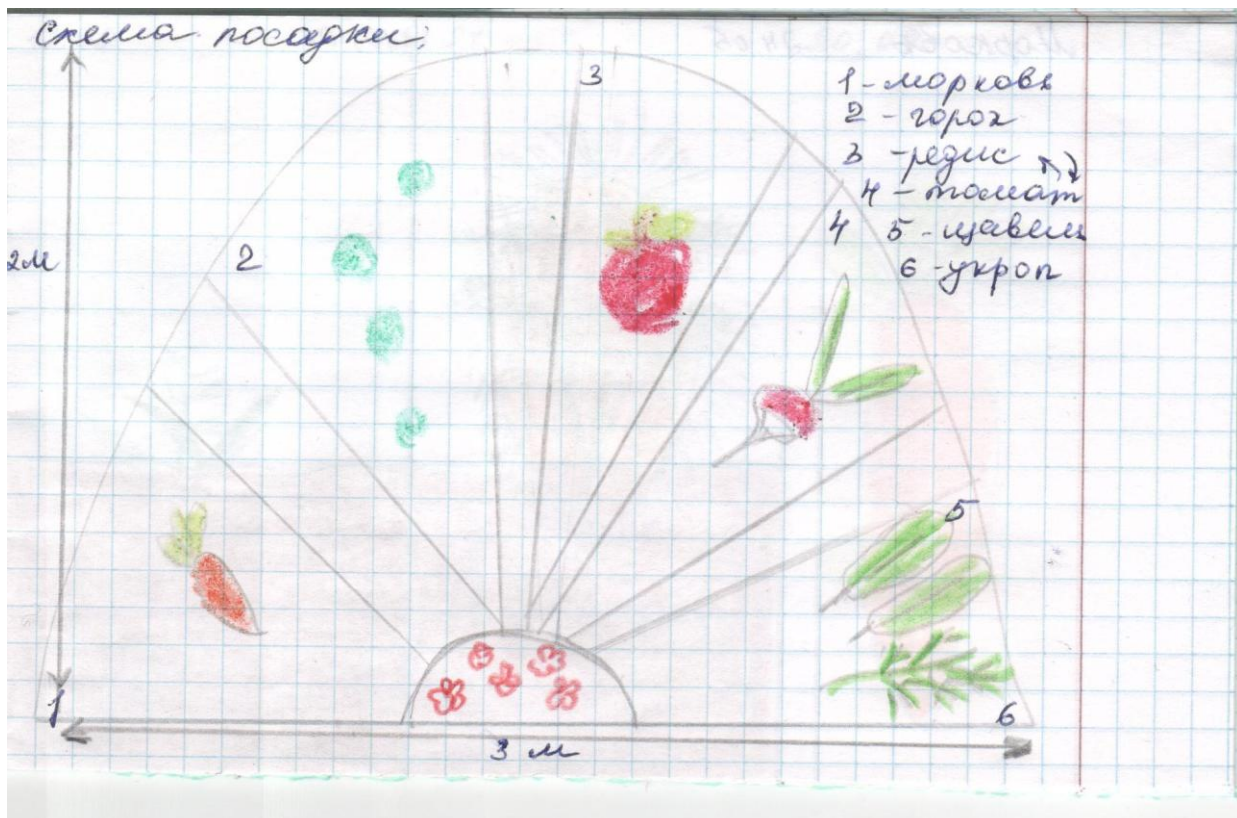 Схема посадки:
3
1 - морковь
2 - горох
3 - редис
4 - томат
4
5 - щавель
6 - укроп
2м
2
5
1
6
3 м